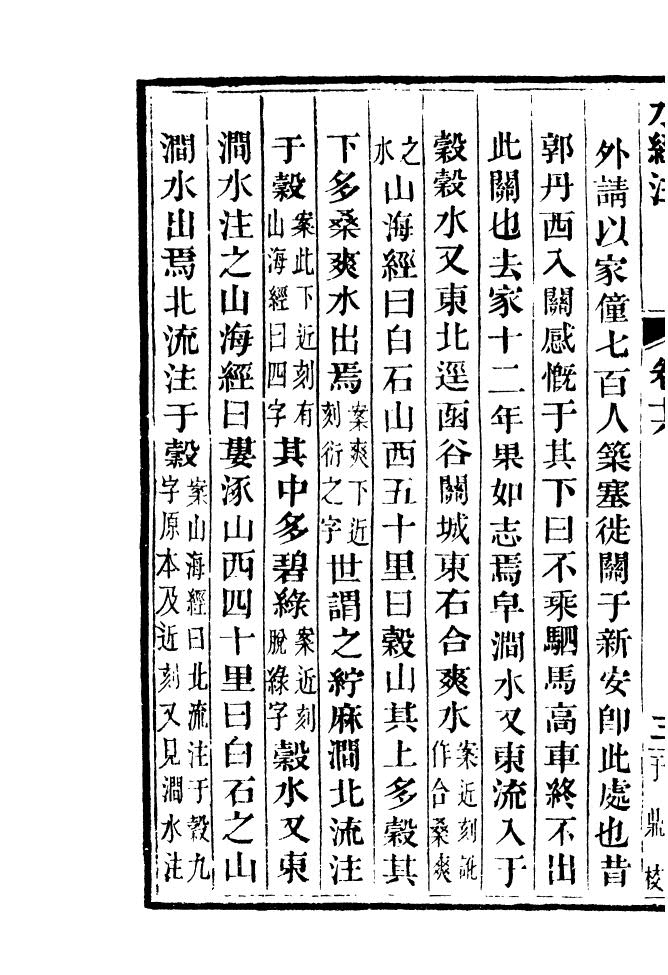 水經注　卷十六　三
外請以家僮七百人築塞徙關于新安卽此處也昔
郭丹西入關感慨于其下曰不乘駟馬高車終不出
此關也去家十二年果如志焉皁澗水又東流入于
穀穀水又東北逕函谷關城東右合爽水案近刻訛作合桑爽
之水山海經曰白石山西五十里曰穀山其上多穀其
下多桑爽水出焉案爽下近刻衍之字世謂之紵麻澗北流注
于穀案此下近刻有山海經曰四字其中多碧綠案近刻脫綠字穀水又東
澗水注之山海經曰婁涿山西四十里曰白石之山
澗水出焉北流注于穀案山海經曰北流注于穀九字原本及近刻又見澗水注